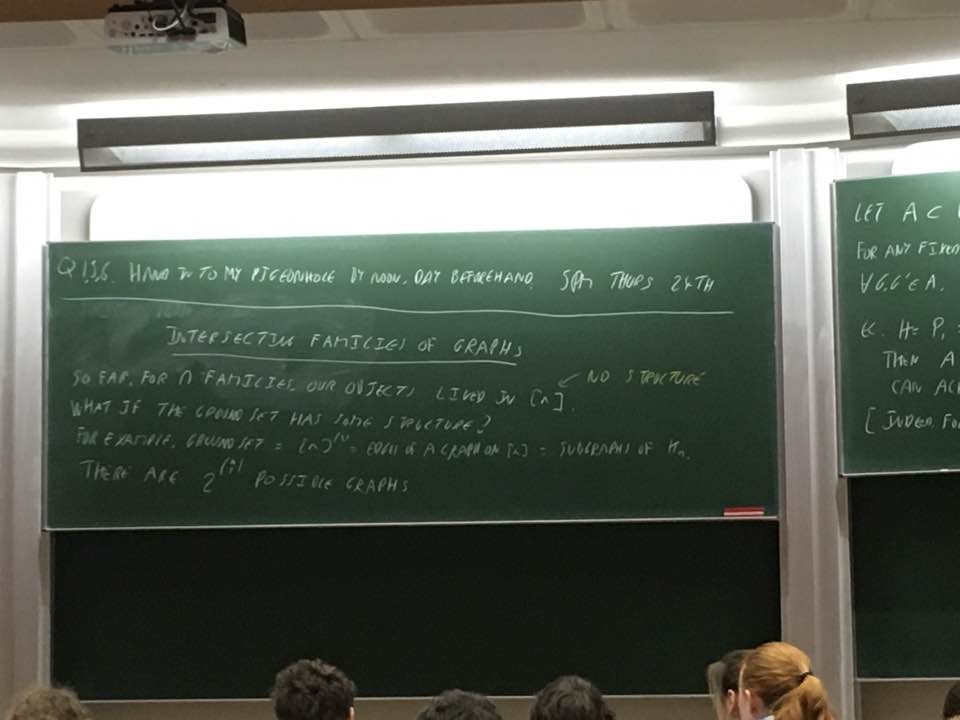 Q 1,5,6. HAND IN TO MY PIGEONHOLE BY NOON, DAY BEFOREHAND. 5PM THURS 24TH
INTERSECTING FAMILIES OF GRAPHS
SO FAR, FOR ∩ FAMILIES, OUR OBJECTS LIVED IN [n]. ← NO STRUCTURE
WHAT IF THE GROUND SET HAS SOME STRUCTURE?
FOR EXAMPLE, GROUND SET = [n]⁽²⁾ = EDGES OF A GRAPH ON [n] = SUBGRAPHS OF Kₙ.
THERE ARE 2^(n 2) POSSIBLE GRAPHS
LET A ⊂
FOR ANY FIXED
∀ G, G' ∈ A,
H = P₁
THEN A
CAN
[ INDEED, FO